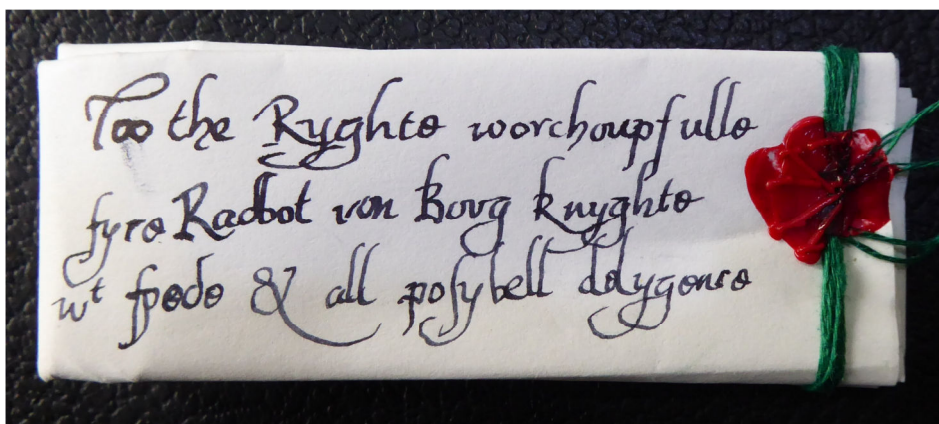 Too the Ryghte worchoupfulle
ſyre Radbot von Borg knyghte
wt ſpede & all poſybell delygence